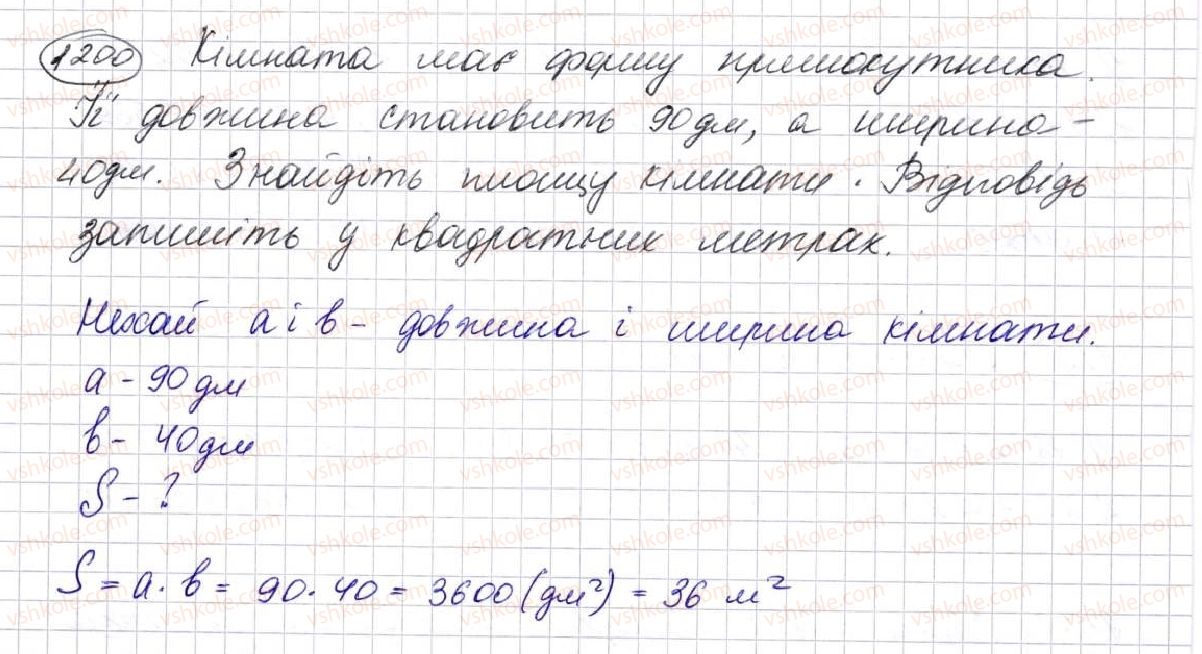 1200 Кімната має форму прямокутника.
Її довжина становить 90 дм, а ширина -
40дм. Знайдіть площу кімнати. Відповідь
запишіть у квадратних метрах.
Нехай a і b - довжина і ширина кімнати.
a - 90 дм
b - 40 дм
S - ?
S = a · b = 90 · 40 = 3600 (дм²) = 36 м²
vshkole.com